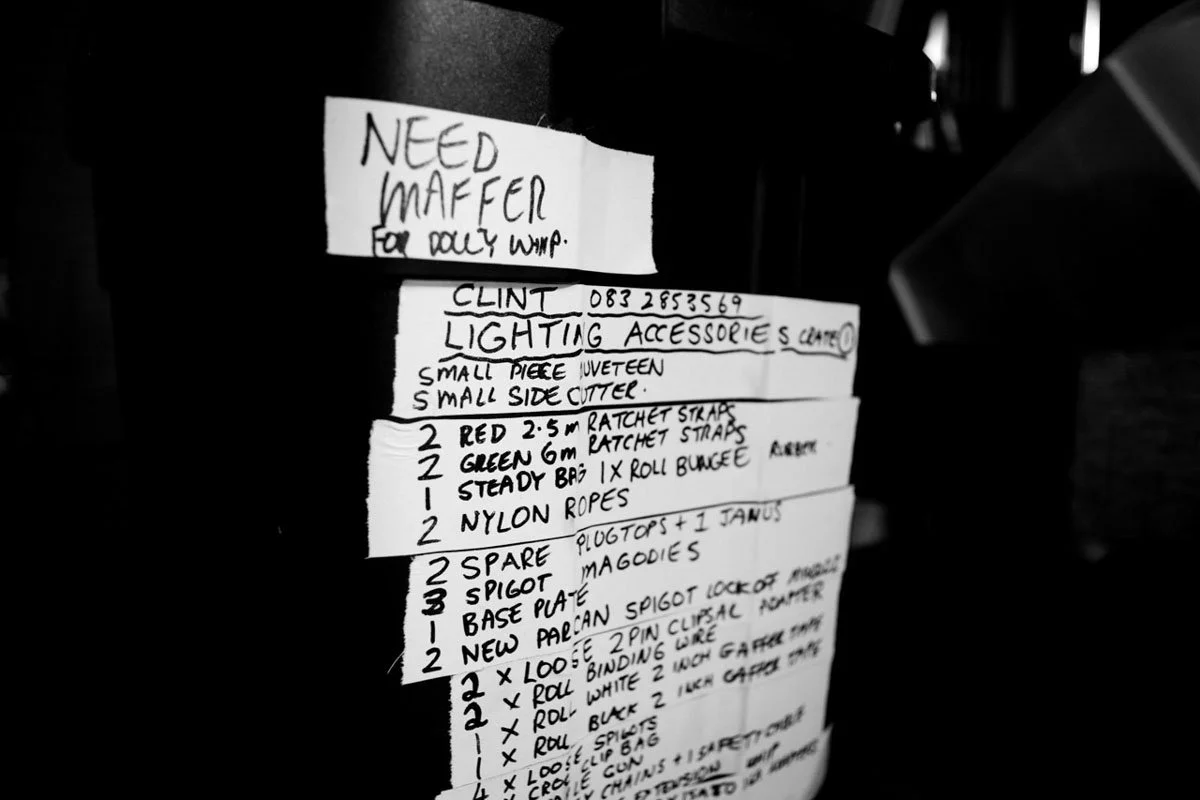 NEED
MAFFER
FOR DOLLY WHIP.
CLINT 083 2853569
LIGHTING ACCESSORIES CRATE 1
SMALL PIECE DUVETEEN
SMALL SIDE CUTTER.
2 RED 2.5m RATCHET STRAPS
2 GREEN 6m RATCHET STRAPS
1 STEADY BAG 1X ROLL BUNGEE RUBBER
2 NYLON ROPES
2 SPARE PLUGTOPS + 1 JANUS
3 SPIGOT MAGODIES
1 BASE PLATE
2 NEW PARCAN SPIGOT LOCKOFF
2 X LOOSE 2 PIN CLIPSAL ADAPTER
2 X ROLL BINDING WIRE
1 X ROLL WHITE 2 INCH GAFFER TAPE
1 X ROLL BLACK 2 INCH GAFFER TAPE
4 X LOOSE SPIGOTS
X CROC CLIP BAG
GUN
CHAINS + 1 SAFETY CABLE
EXTENSION WHIP